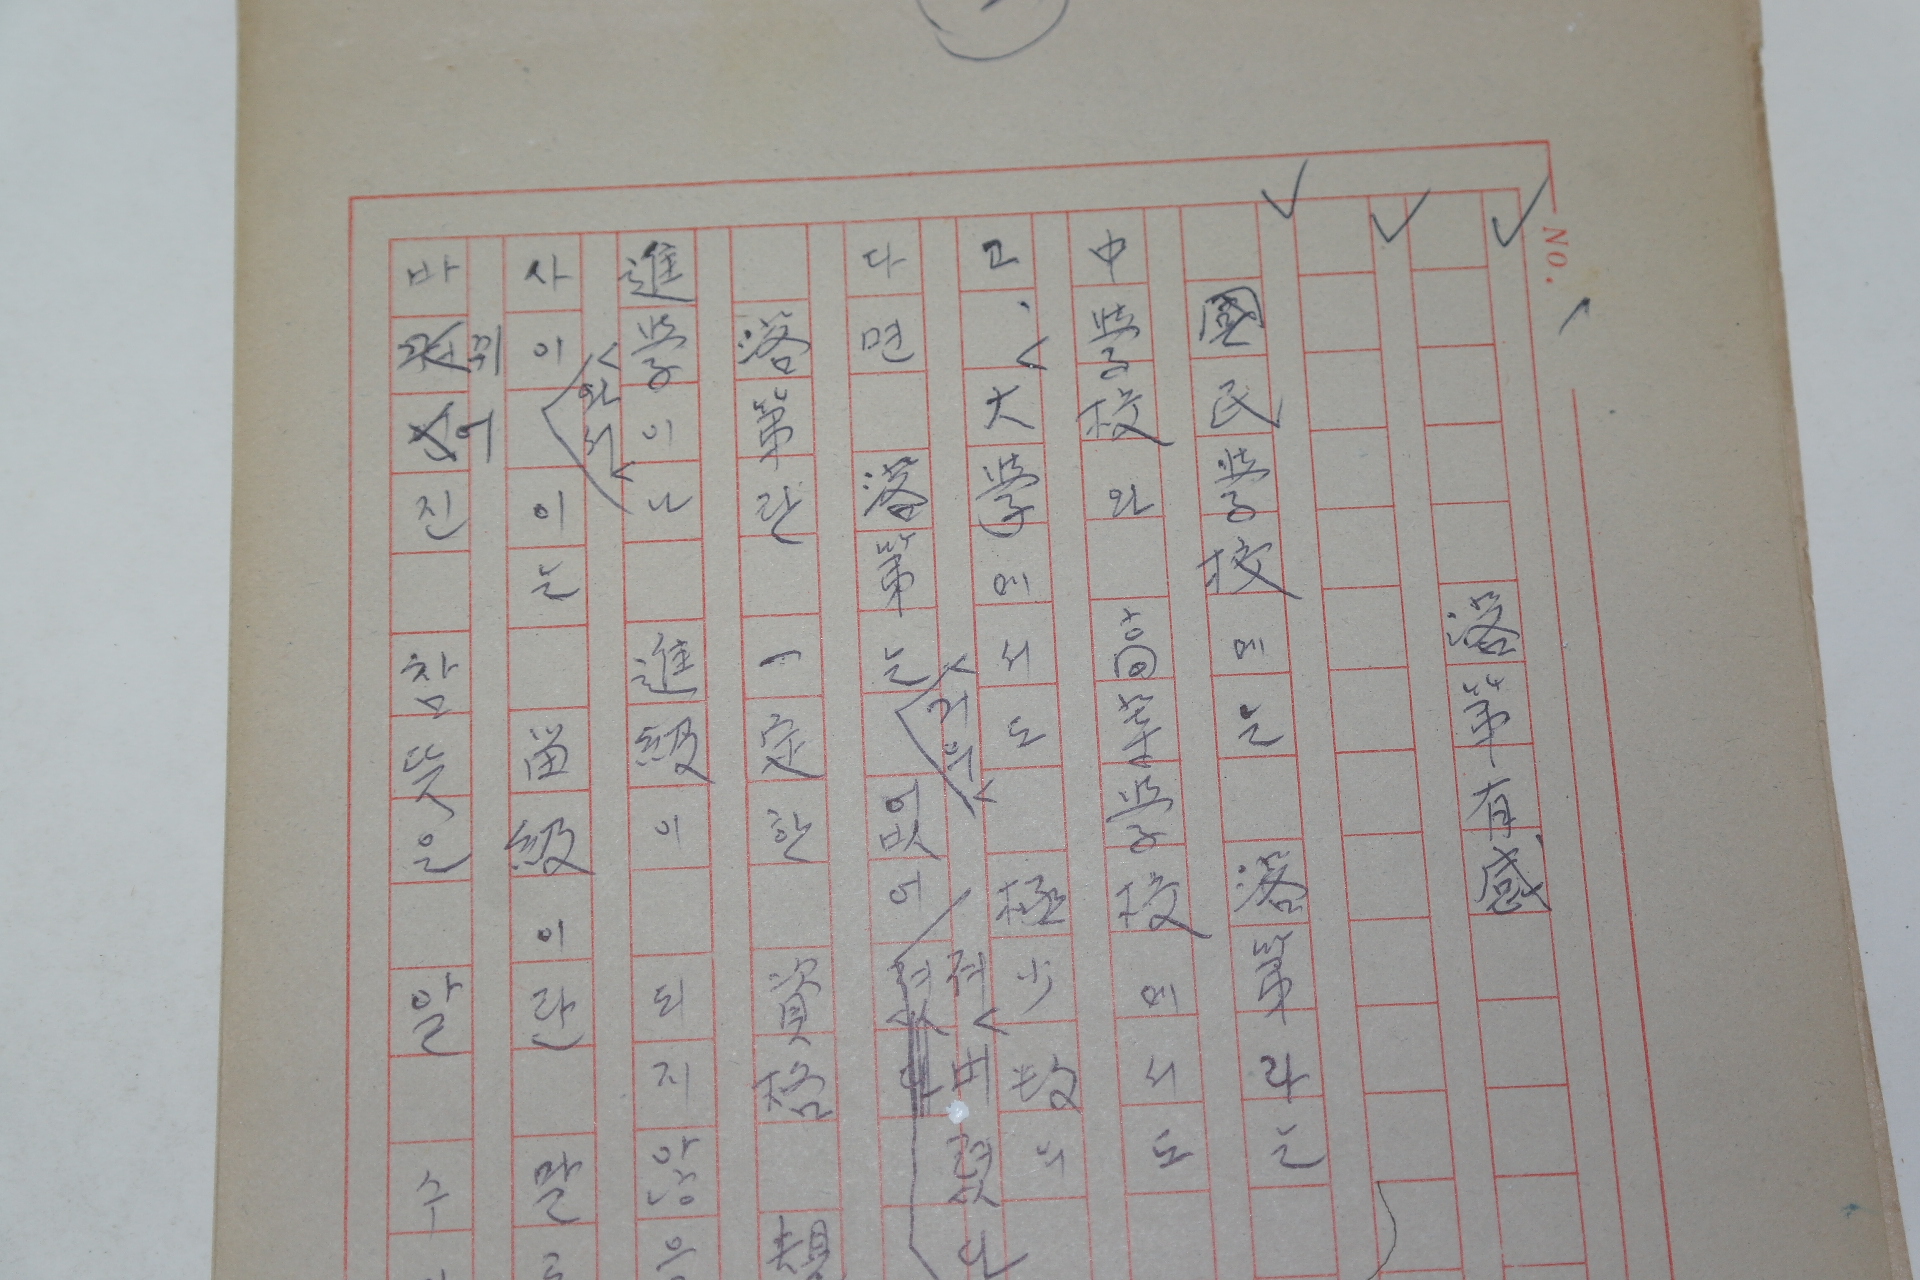 No.
落第有感
國民學校에는 落第라는
中學校와 高等學校에서도
고, 大學에서도 極少數의
다면 落第는 거의 없어져 버렸다
落第란 一定한 資格
進學이나 進級이 되지 않은
사이 이는 留級이란 말로
바뀌어진 참뜻은 알 수